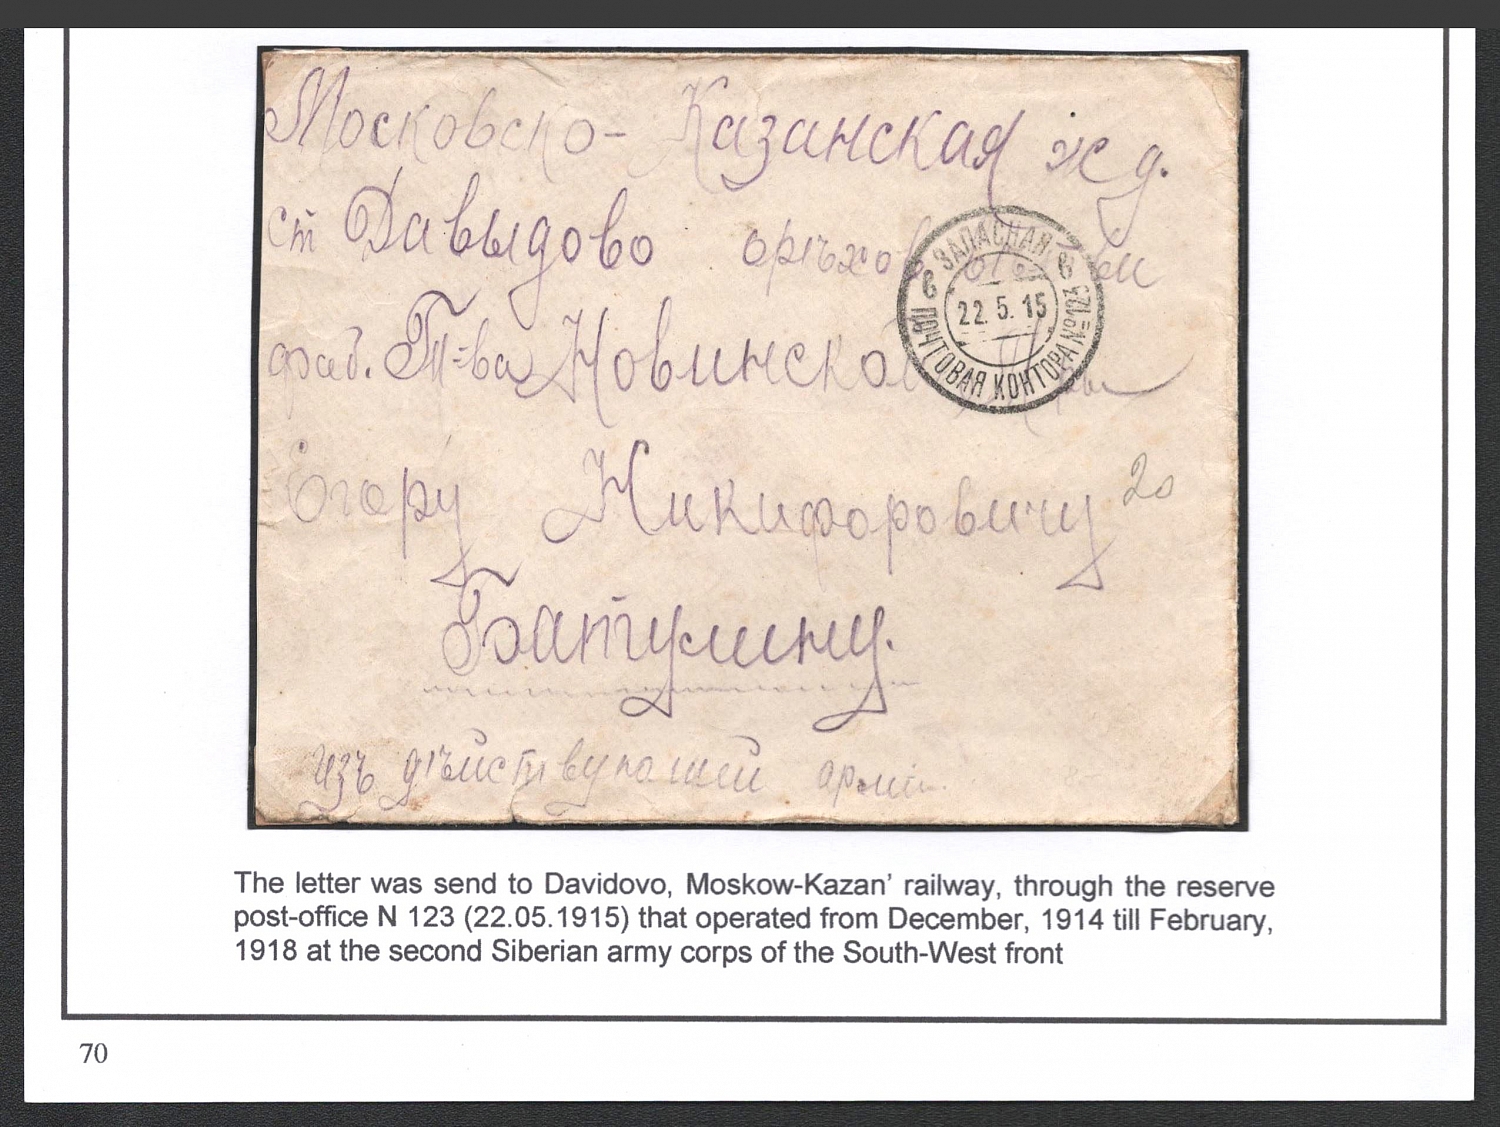 Московско- Казанская ж д.
ст Давыдово орѣхов
фаб. Т-ва Новинско
Егору Никифоровичу 20
Батулину.
Изъ дѣйствующей арміи
ЗАПАСНАЯ
в в
22.5.15
ПОЧТОВАЯ КОНТОРА №123
The letter was send to Davidovo, Moskow-Kazan’ railway, through the reserve
post-office N 123 (22.05.1915) that operated from December, 1914 till February,
1918 at the second Siberian army corps of the South-West front
70